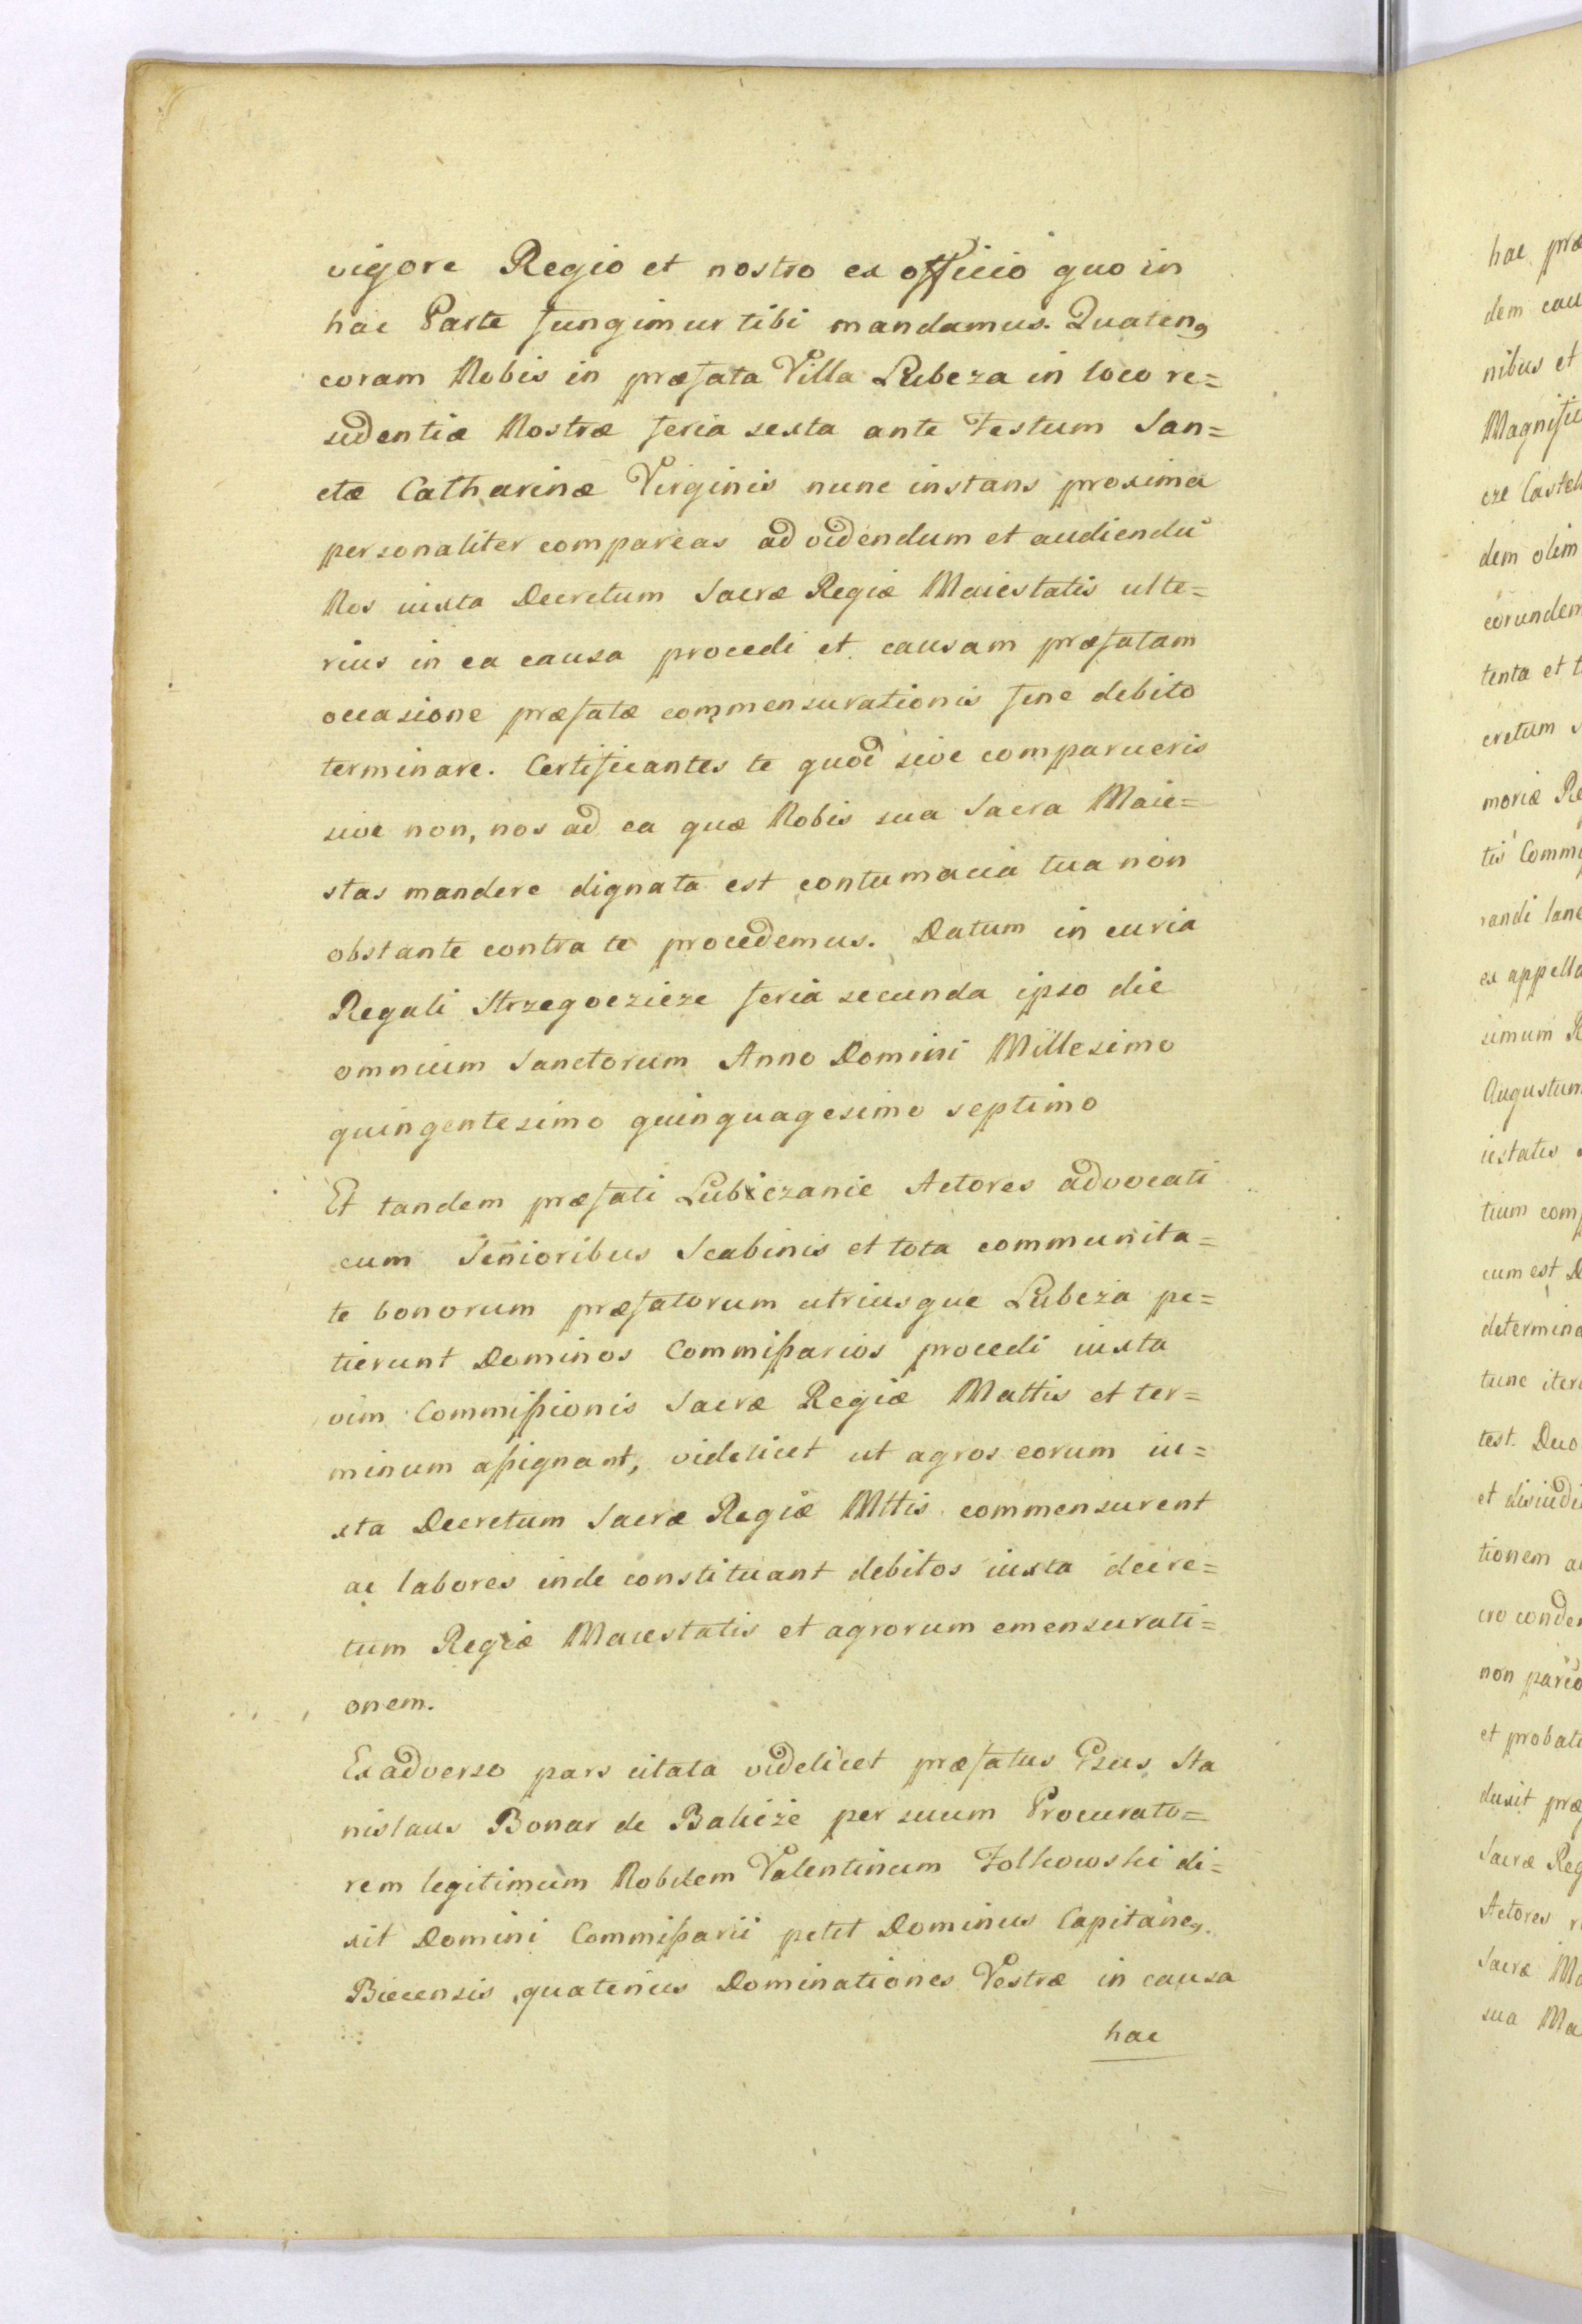 vigore Regio et nostro ex officio quo in
hac Parte fungimur tibi mandamus. Quaten9
coram Nobis in præfata Villa Lubcza in loco re=
sidentiæ Nostræ feria sexta ante Festum San=
ctæ Catharinæ Virginis nunc instans proxima
personaliter compareas ad videndum et audiendū
Nos iuxta Decretum Sacræ Regiæ Maiestatis ulte=
rius in ea causa procedi et causam præfatam
occasione præfatæ commensurationis fine debito
terminare. Certificantes te quod sive comparueris
sive non, nos ad ea quæ Nobis sua Sacra Maie=
stas mandere dignata est contumacia tua non
obstante contra te procedemus. Datum in curia
Regali Strzegoczicze feria secunda ipso die
omnium Sanctorum Anno Domini Millesimo
quingentesimo quinquagesimo septimo
Et tandem præfati Lubiczanie Actores advocati
cum Senioribus Scabinis et tota communita=
te bonorum præfatorum utriusque Lubcza pe=
tierunt Dominos Commißarios procedi iuxta
vim Commißionis Sacræ Regiæ Mattis et ter=
minum aßignant, videlicet ut agros eorum iu=
xta Decretum Sacræ Regiæ Mttis commensurent
ac labores inde constituant debitos iuxta decre=
tum Regiæ Maiestatis et agrorum emensurati=
onem.
Ex adverso pars citata videlicet præfatus Gsus Sta
nislaus Bonar de Balicze per suum Procurato=
rem legitimum Nobilem Valentinum Folkowski di=
xit Domini Commißarii petit Dominus Capitane9
Biecensis, quatenus Dominationes Vestræ in causa
hac
hac præ
dem cau
nibus et
Magnific
cze Castel
dem olim
eorundem
tenta et t
cretum s
moriæ Re
tis Commi
randi lane
ex appella
simum R
Augustum
iestatis
tium com
cum est D
determina
tunc iter
test. Duo
et disiudi
tionem a
cro conde
non pareo
et probat
duxit præ
Sacræ Reg
Actores r
Sacræ Ma
sua Ma